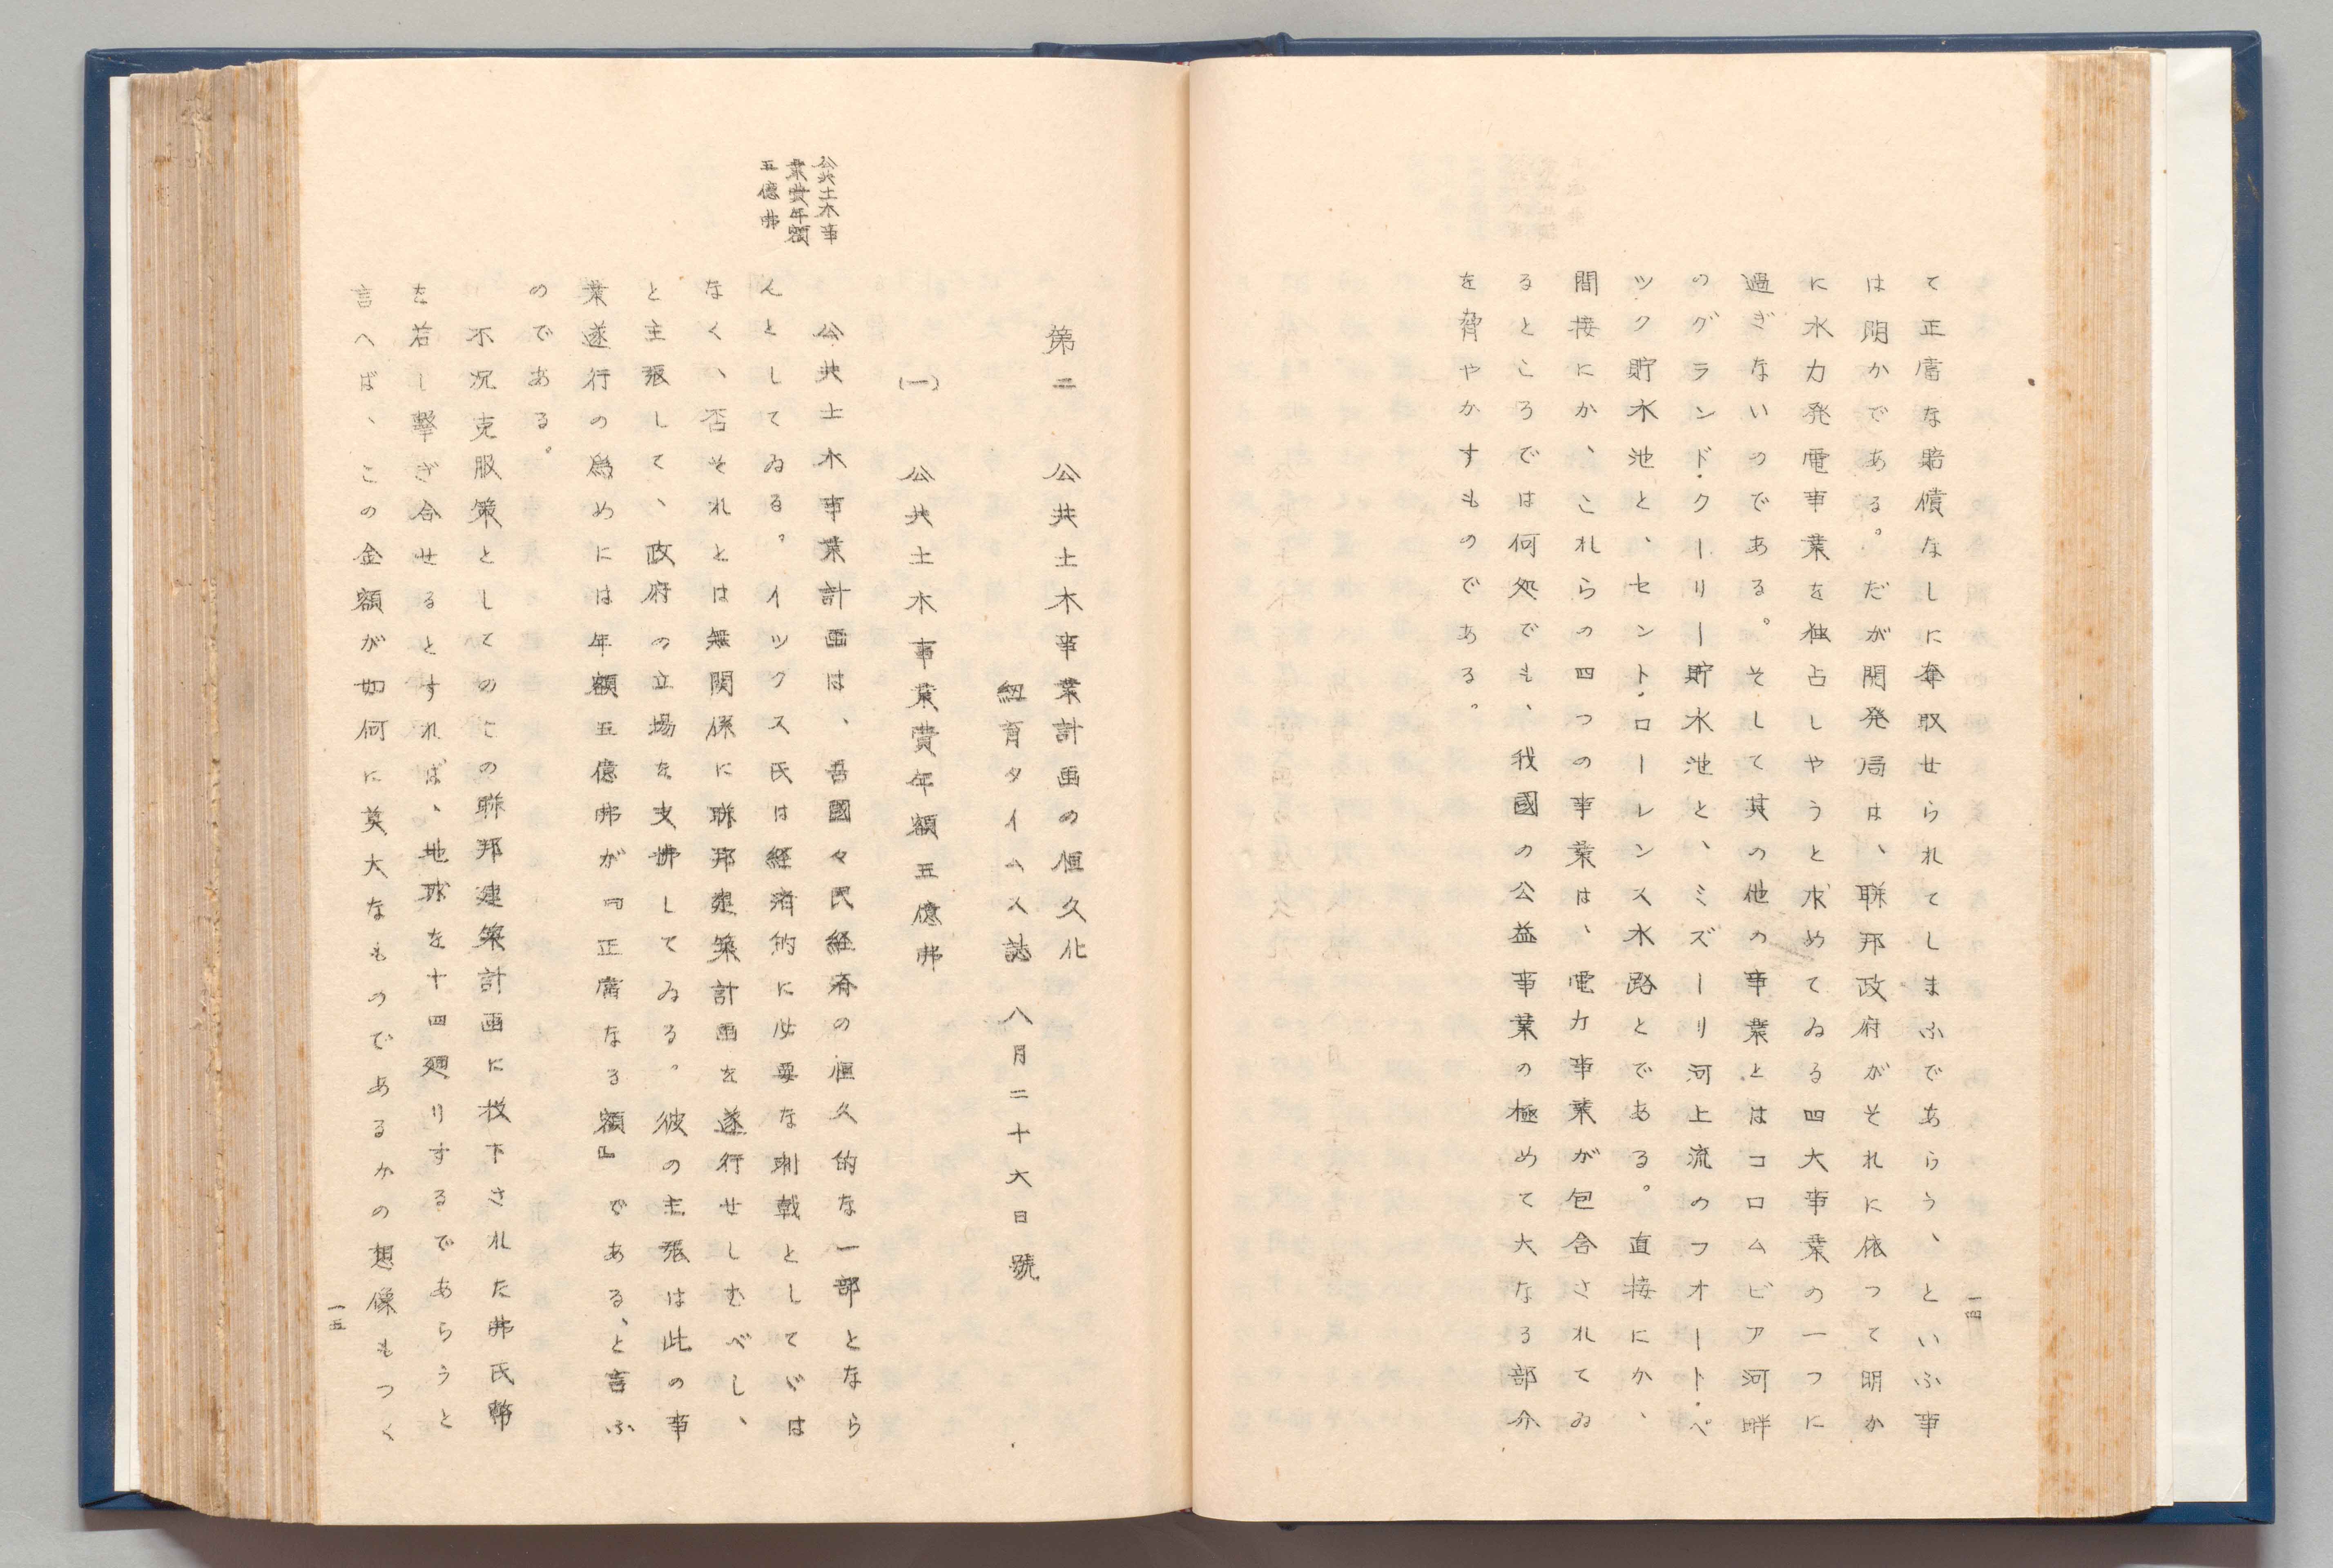 て正當な賠償なしに奪取せられてしまふであらう、といふ事
は明かである。だが開発局は、聯邦政府がそれに依つて明か
に水力発電事業を独占しやうと求めてゐる四大事業の一つに
過ぎないのである。そして其の他の事業とはコロムビア河畔
のグランド・クーリー貯水池と、ミズーリ河上流のフオート・ペ
ツク貯水池と、セント・ローレンス水路とである。直接にか、
間接にか、これらの四つの事業は、電力事業が包含されてゐ
るところでは何処でも、我國の公益事業の極めて大なる部分
を脅やかすものである。
一四
第二　公共土木事業計画の恒久化
紐育タイムス誌　八月二十六日號
(一)　公共土木事業費年額五億弗
公共土木事
業費年額
五億弗
公共土木事業計画は、吾國々民経済の恒久的な一部となら
んとしてゐる。イツクス氏は経済的に必要な刺戟としてゞは
なく、否それとは無関係に聯邦建築計画を遂行せしむべし、
と主張して、政府の立場を支拂してゐる。彼の主張は此の事
業遂行の為めには年額五億弗が『正當なる額』である、と言ふ
のである。
不況克服策としてのこの聯邦建築計画に投下された弗氏幣
を若し撃ぎ合せるとすれば、地球を十四廻りするであらうと
言へば、この金額が如何に莫大なものであるかの想像もつく
一五